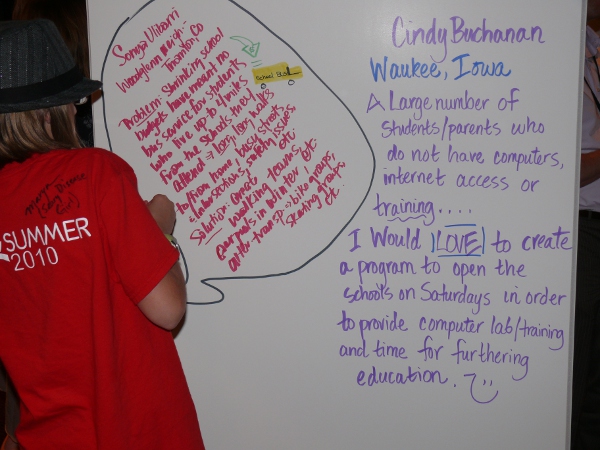 Sonya Ulibarri
Woodglenn Neigh:
Thornton, CO
Problem: Shrinking school
budgets have meant no
bus service for students
who live up to 4 miles
from the schools they
attend → long, long walks
to/from home, busy streets
+ intersections, safety issues
Solution: Great etc
walking teams,
carpools in winter, etc
alt. transp → bike groups,
skating groups,
etc.
School Bus
Cindy Buchanan
Waukee, Iowa
A Large number of
students/parents who
do not have computers,
internet access or
training....
I Would LOVE to create
a program to open the
schools on Saturdays in order
to provide computer lab/training
and time for furthering
education.
SUMMER
2010